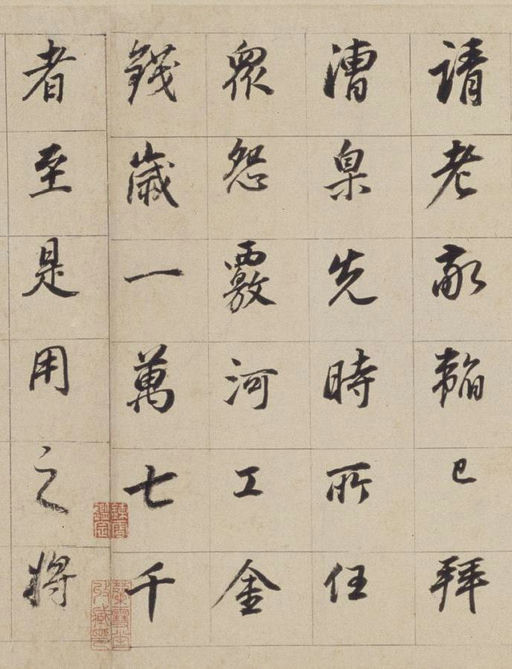 請老韜已拜
漕臬先時所任
衆怨覈河工金
錢歲一萬七千
者至是用之將